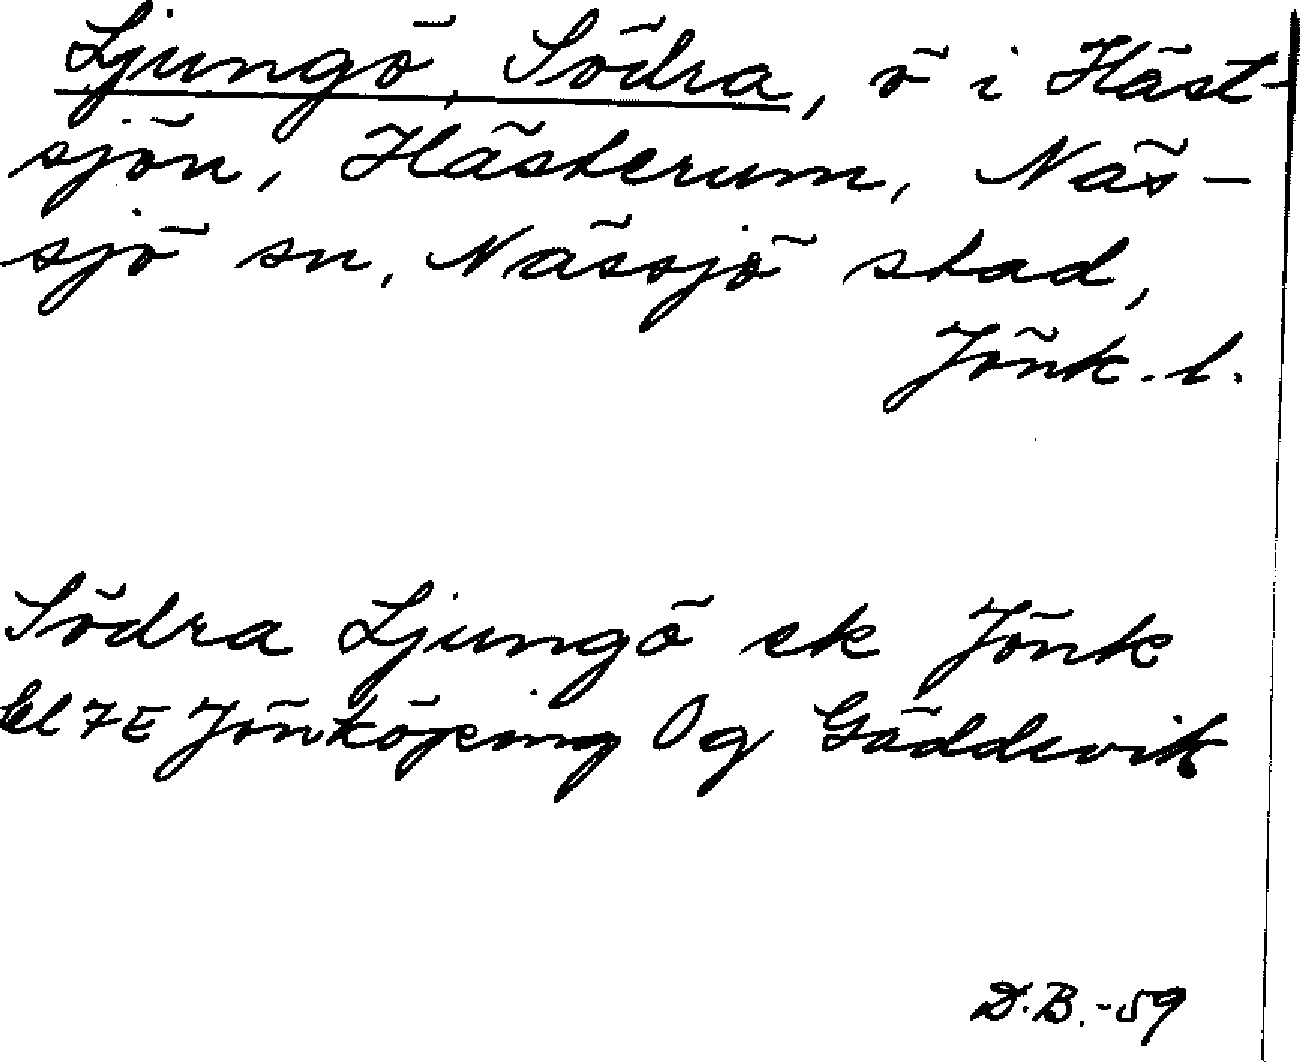 Ljungö, Södra, ö i Häst-
sjön, Hästerum, Näs-
sjö sn, Nässjö stad,
Jönk. l.
Södra Ljungö ek Jönk
bl 7E Jönköping Og Gäddevik
D.B.-59